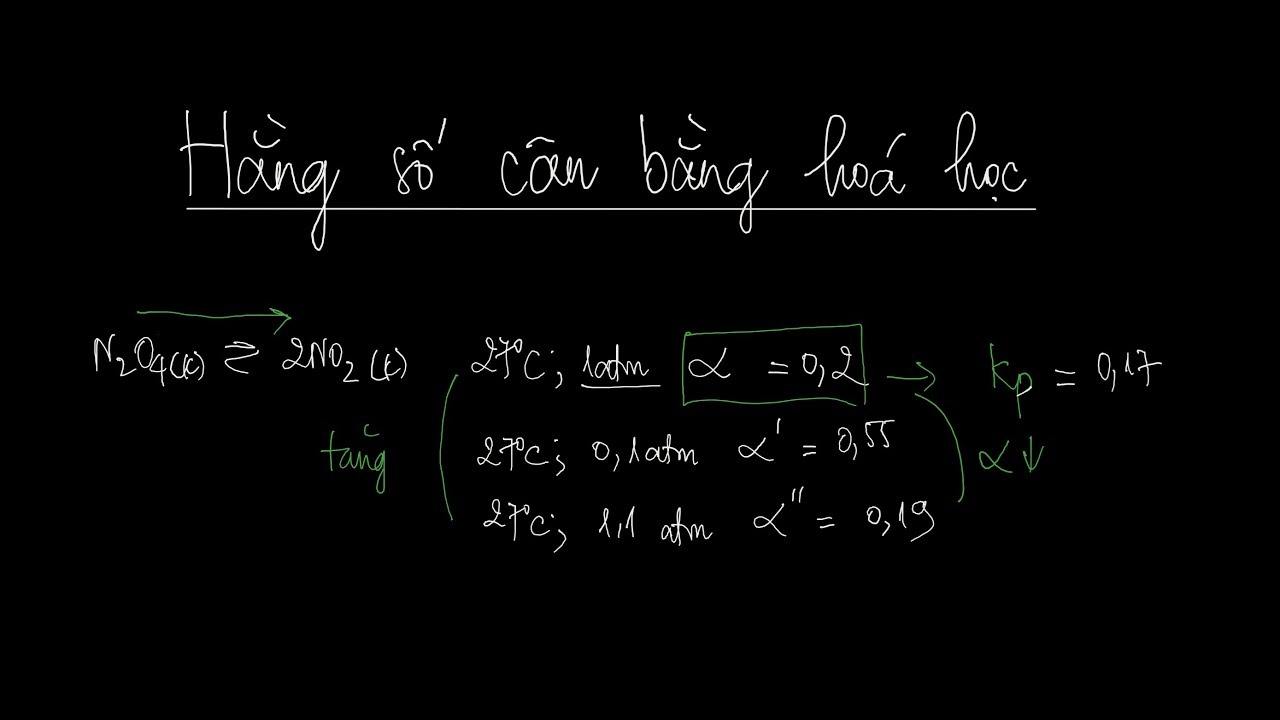 Hằng số cân bằng hoá học
N₂O₄(k) ⇌ 2NO₂ (k) 27°C; 1atm α = 0,2 → Kp = 0,17
tăng 27°C; 0,1atm α' = 0,55 α↓
27°C; 1,1 atm α'' = 0,19